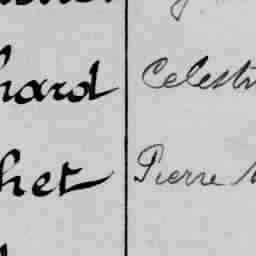 hard Celest
het Pierre